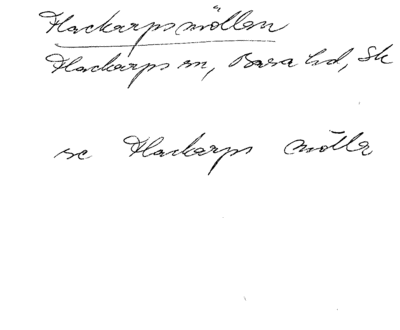 Flackarpsmöllan
Flackarps sn, Bara hd, Sk
se Flackarps mölla